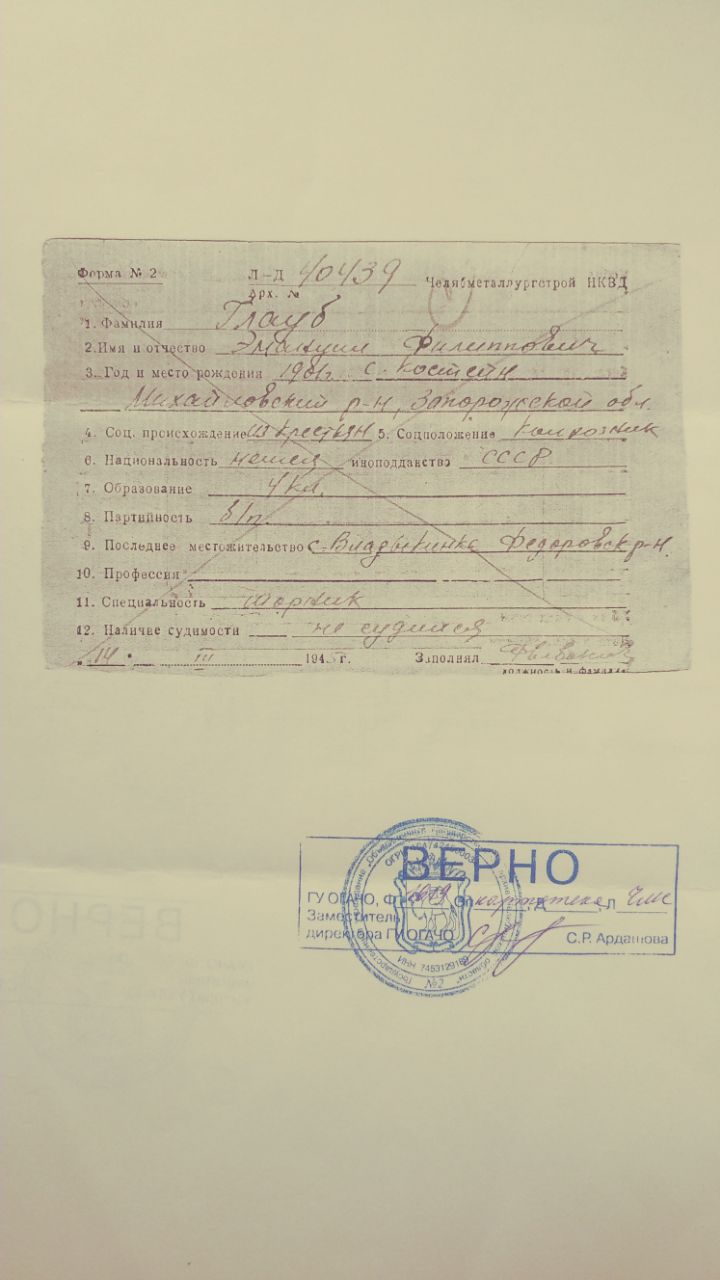 Форма № 2
Л-Д 40439 Челябметаллургстрой НКВД
Арх. №
1. Фамилия Глауб
2. Имя и отчество Эмануил Филиппович
3. Год и место рождения 1901г. с. Костейн
Михайловский р-н, Запорожской обл.
4. Соц. происхождение из крестьян 5. Соцположение колхозник
6. Национальность немец иноподданство СССР
7. Образование 4 кл.
8. Партийность б/п.
9. Последнее местожительство с. Владыкинка Федоровск р-н.
10. Профессия
11. Специальность шорник
12. Наличие судимости не судился
„14" III 1943 г. Заполнял
должность и фамилия
ВЕРНО
ГУ ОГАЧО, Ф. 1619 Оп картотека Д Л ЧМС
Заместитель
директора ГУ ОГАЧО С.Р. Ардашова
ИНН 7453129162
№2